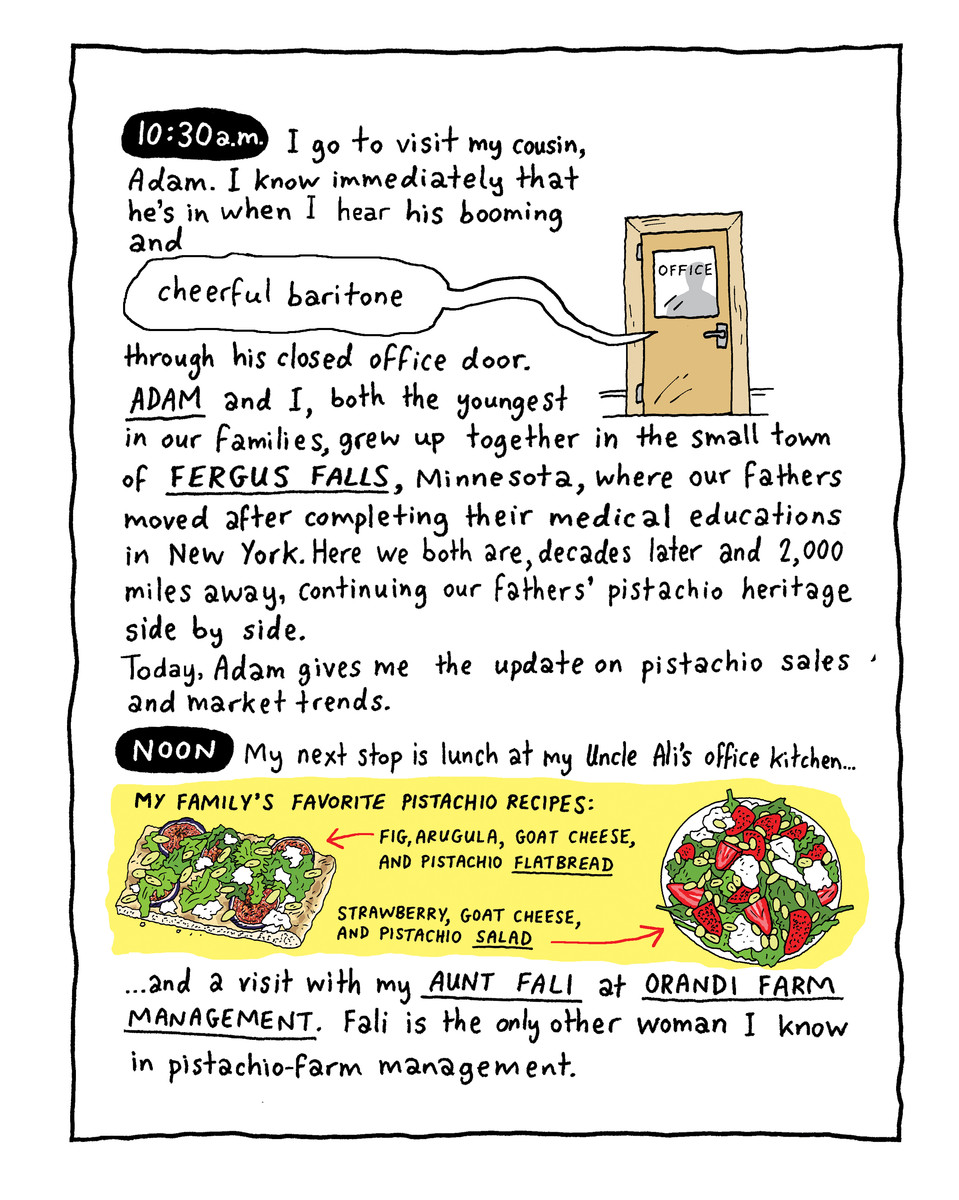 10:30a.m. I go to visit my cousin,
Adam. I know immediately that
he's in when I hear his booming
and
cheerful baritone
OFFICE
through his closed office door.
ADAM and I, both the youngest
in our families, grew up together in the small town
of FERGUS FALLS, Minnesota, where our fathers
moved after completing their medical educations
in New York. Here we both are, decades later and 2,000
miles away, continuing our fathers' pistachio heritage
side by side.
Today, Adam gives me the update on pistachio sales
and market trends.
NOON My next stop is lunch at my Uncle Ali's office kitchen...
MY FAMILY'S FAVORITE PISTACHIO RECIPES:
FIG, ARUGULA, GOAT CHEESE,
AND PISTACHIO FLATBREAD
STRAWBERRY, GOAT CHEESE,
AND PISTACHIO SALAD
...and a visit with my AUNT FALI at ORANDI FARM
MANAGEMENT. Fali is the only other woman I know
in pistachio-farm management.